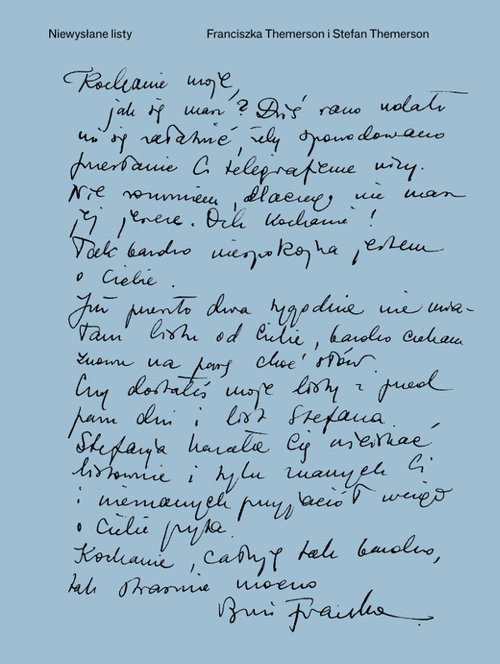 Niewysłane listy
Franciszka Themerson i Stefan Themerson
Kochanie moje,
jak się masz? Dziś rano udało
mi się załatwić, żeby spowodowano
przesłanie Ci telegraficznie wizy.
Nie rozumiem, dlaczego nie masz
jej jeszcze. Och kochanie!
Tak bardzo niespokojna jestem
o Ciebie.
Już przeszło dwa tygodnie nie mia-
łam listu od Ciebie, bardzo czekam
znowu na parę choć słów.
Czy dostałeś moje listy z przed
paru dni i list Stefana.
Stefania kazała Cię uściskać
listownie i tylu znanych Ci
i nieznanych przyjaciół wciąż
o Ciebie pyta.
Kochanie, całuję tak bardzo,
tak strasznie mocno
Franciszka